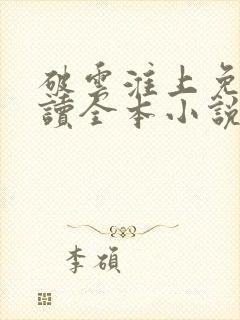 破雲淮上免
讀全本小說
李碩